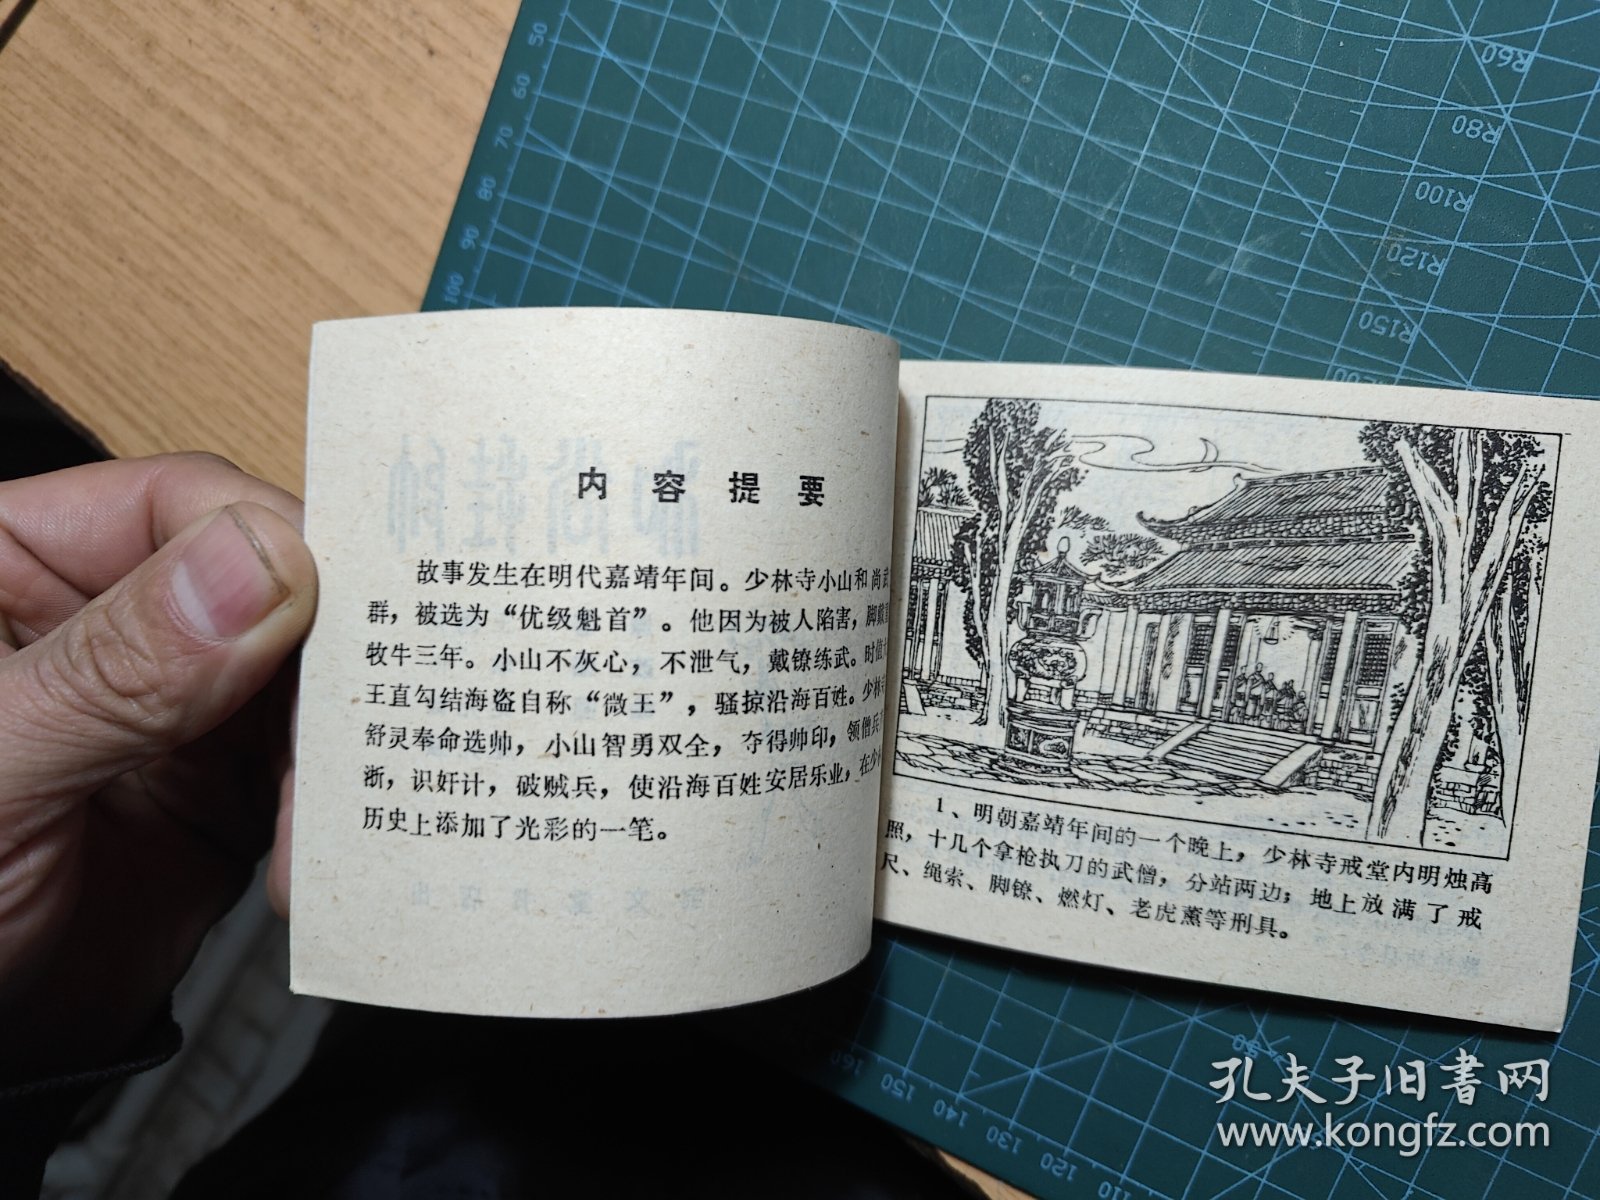 内容提要
故事发生在明代嘉靖年间。少林寺小山和尚武
群，被选为“优级魁首”。他因为被人陷害，脚戴
牧牛三年。小山不灰心，不泄气，戴镣练武。时值
王直勾结海盗自称“微王”，骚掠沿海百姓。少林
舒灵奉命选帅，小山智勇双全，夺得帅印，领僧兵
浙，识奸计，破贼兵，使沿海百姓安居乐业，在少
历史上添加了光彩的一笔。
1、明朝嘉靖年间的一个晚上，少林寺戒堂内明烛高
照，十几个拿枪执刀的武僧，分站两边；地上放满了戒
尺、绳索、脚镣、燃灯、老虎薰等刑具。
50
60
70
80
90
100
R60
R80
R100
R120
R150
R200
160
150
140
130
120
110
孔夫子旧書网
www.kongfz.com